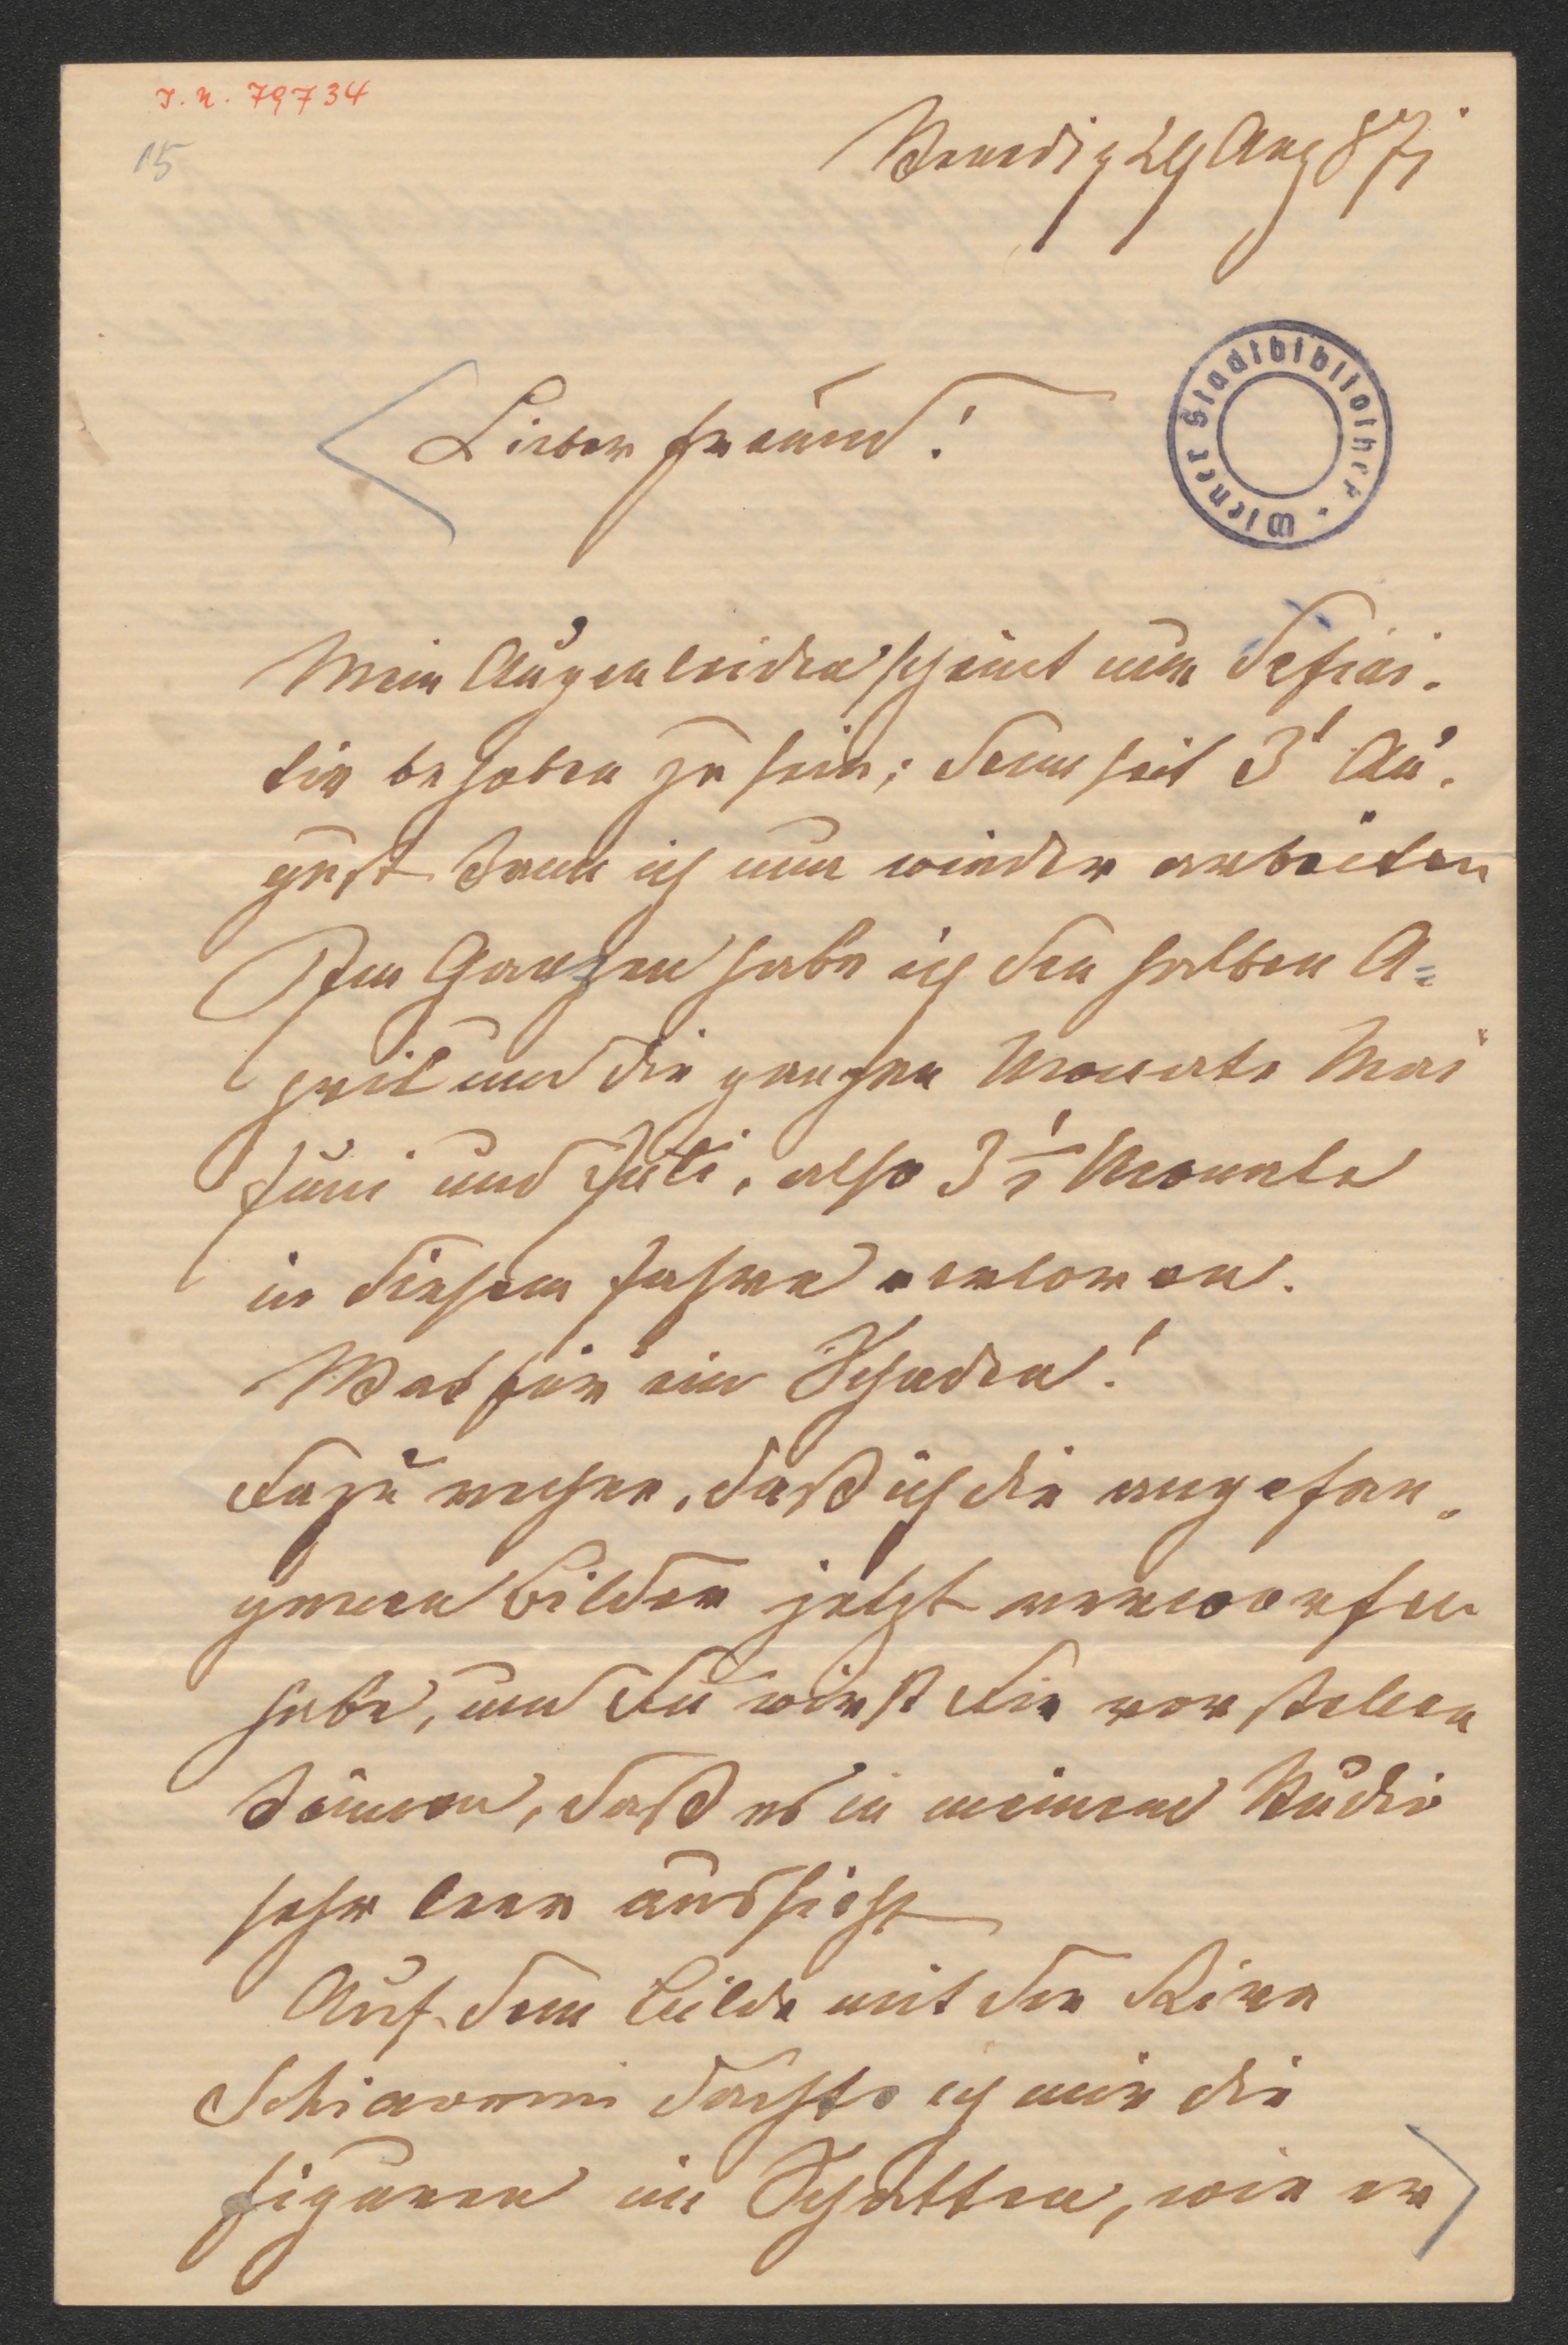 J. N. 79734
15
Venedig 29 Aug 87
Wiener Stadtbibliothek.
Lieber Freund!
Mein Augenleiden scheint nun defini-
tiv behoben zu sein; denn seit 3t Au-
gust kann ich nun wieder arbeiten
Im Ganzen habe ich den halben A=
pril und die ganzen Monate Mai
Juni und Juli, also 3 1/2 Monate
in diesem Jahre verloren.
Was für ein Schaden!
Dazu rechne, daß ich die angefan-
genen Bilder jetzt verworfen
habe, und Du wirst Dir vorstellen
können, daß es in meinem Studio
sehr leer aussieht
Auf dem Bilde mit der Riva
Schiavoni dachte ich mir die
Figuren im Schatten, wie er